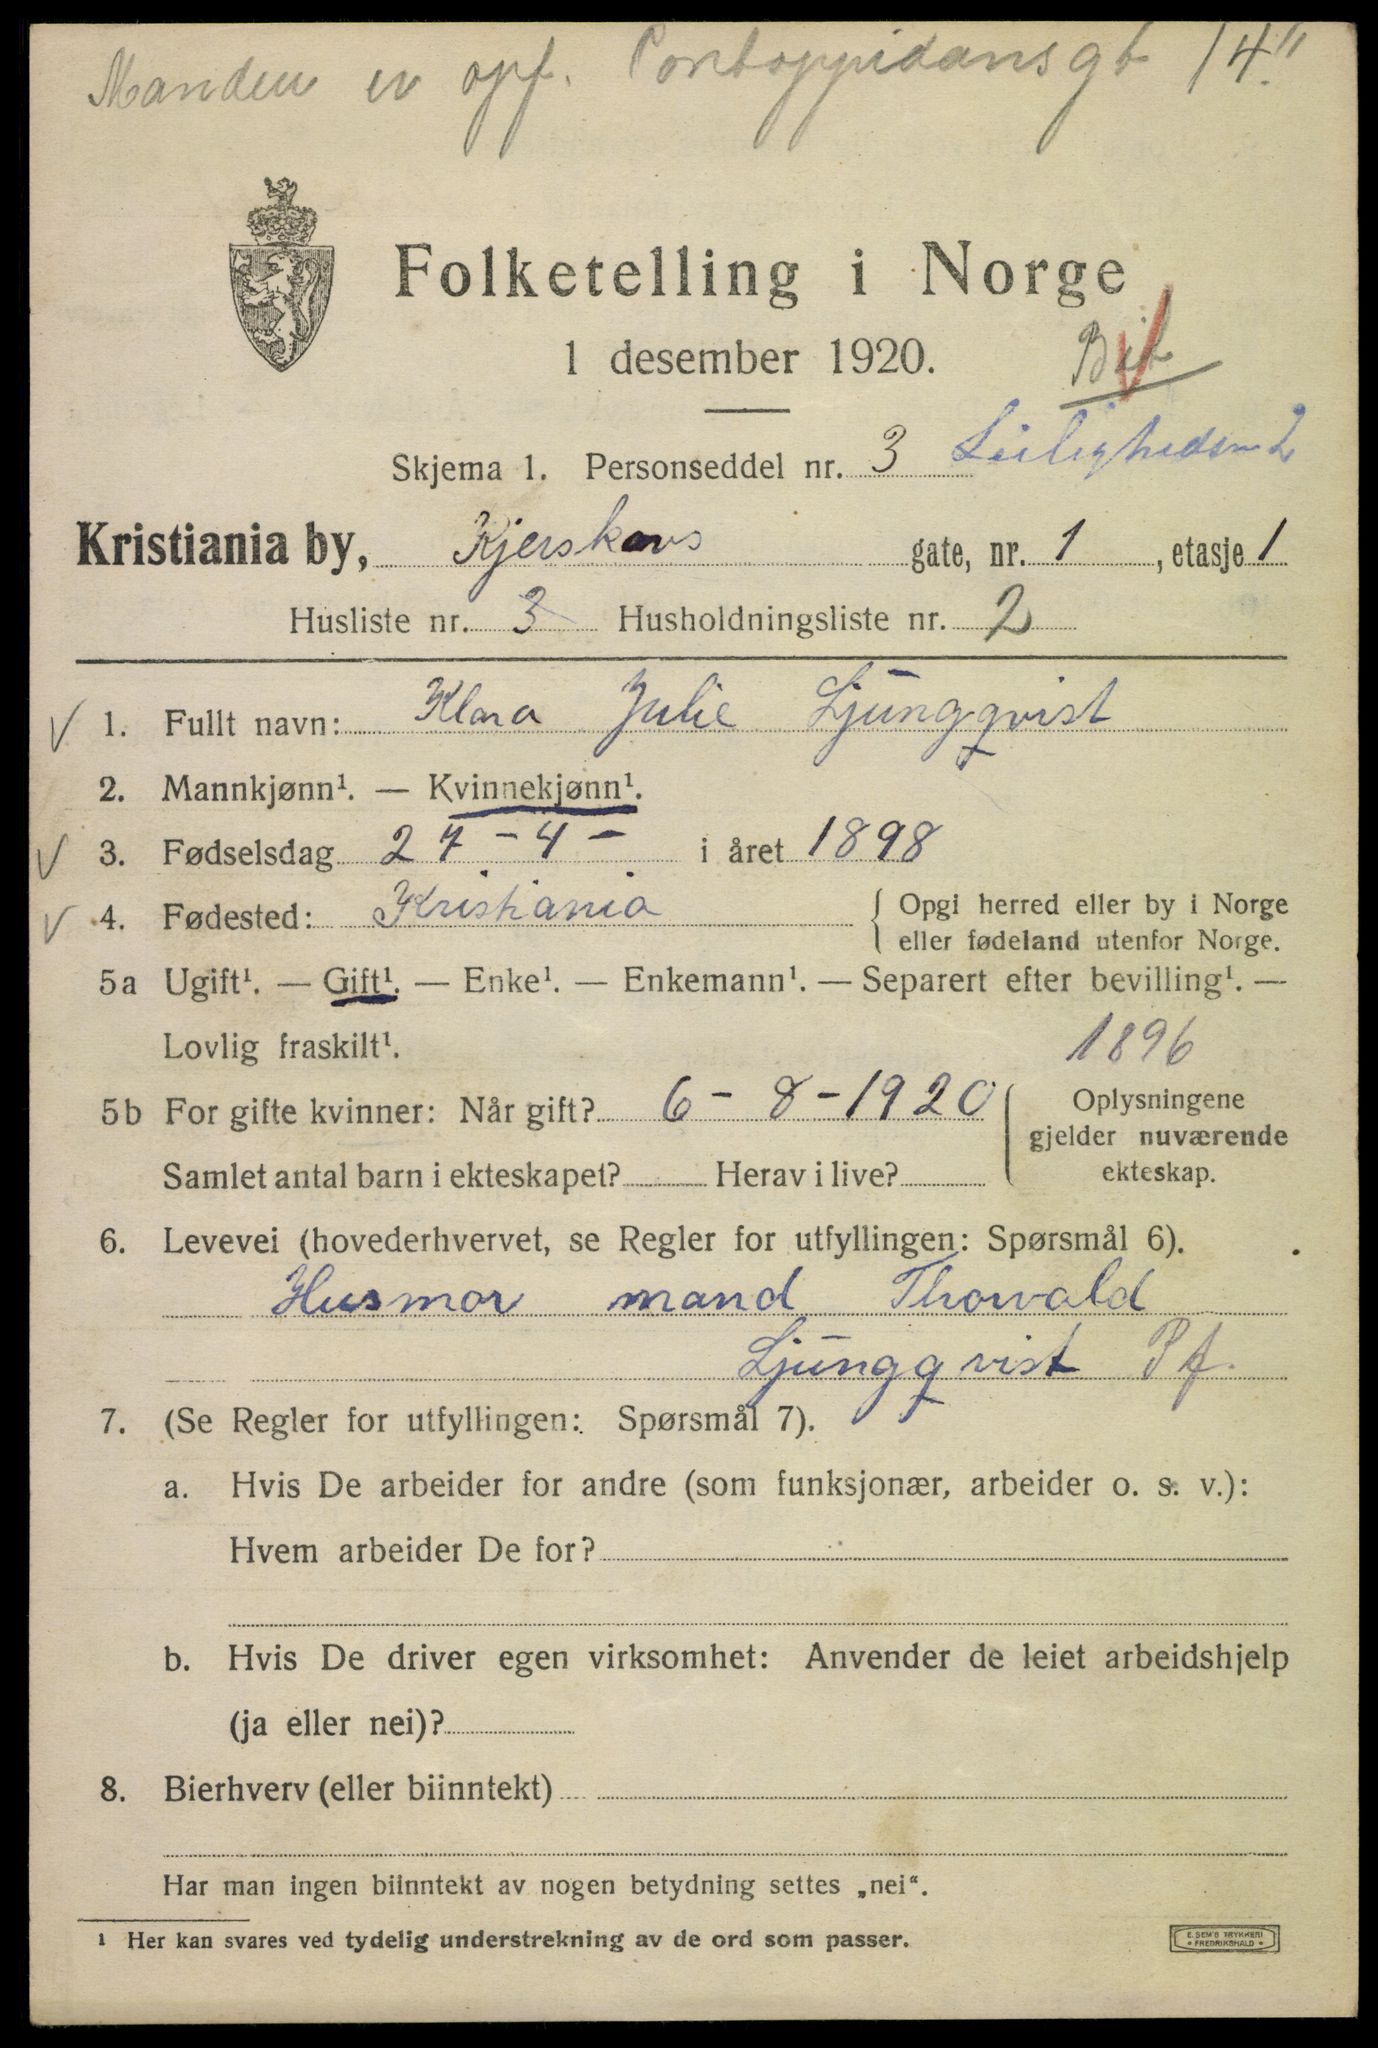 Manden er opf. Pontoppidansgt 14"
Folketelling i Norge
1 desember 1920.
Skjema 1. Personseddel nr. 3 Leilighedsn 2
Kristiania by, Kjerskovs gate, nr. 1, etasje 1
Husliste nr. 3 Husholdningsliste nr. 2
1. Fullt navn: Klara Julie Ljungqvist
2. Mannkjønn¹. — Kvinnekjønn¹.
3. Fødselsdag 27-4- i året 1898
4. Fødested: Kristiania { Opgi herred eller by i Norge
eller fødeland utenfor Norge.
5a Ugift¹. — Gift¹. — Enke¹. — Enkemann¹. — Separert efter bevilling¹. —
Lovlig fraskilt¹. 1896
5b For gifte kvinner: Når gift? 6-8-1920 { Oplysningene
gjelder nuværende
ekteskap.
Samlet antal barn i ekteskapet? Herav i live?
6. Levevei (hovederhvervet, se Regler for utfyllingen: Spørsmål 6).
Husmor mand Thorvald
Ljungqvist Pf.
7. (Se Regler for utfyllingen: Spørsmål 7).
a. Hvis De arbeider for andre (som funksjonær, arbeider o. s. v.):
Hvem arbeider De for?
b. Hvis De driver egen virksomhet: Anvender de leiet arbeidshjelp
(ja eller nei)?
8. Bierhverv (eller biinntekt)
Har man ingen biinntekt av nogen betydning settes „nei“.
¹ Her kan svares ved tydelig understrekning av de ord som passer.
E. SEM'S TRYKKERI
• FREDRIKSHALD •